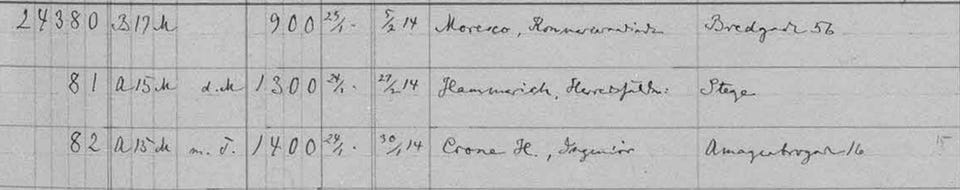 24380 B17M 900 25/1. 5/2 14 Moresco, Kommerceraadinde Bredgade 56
81 A15M d.M 1300 24/1. 27/2 14 Hammerich, Herredsfuldm: Stege
82 A15M m.T. 1400 24/1. 30/1 14 Crone H., Ingeniør Amagerbrogade 16 15